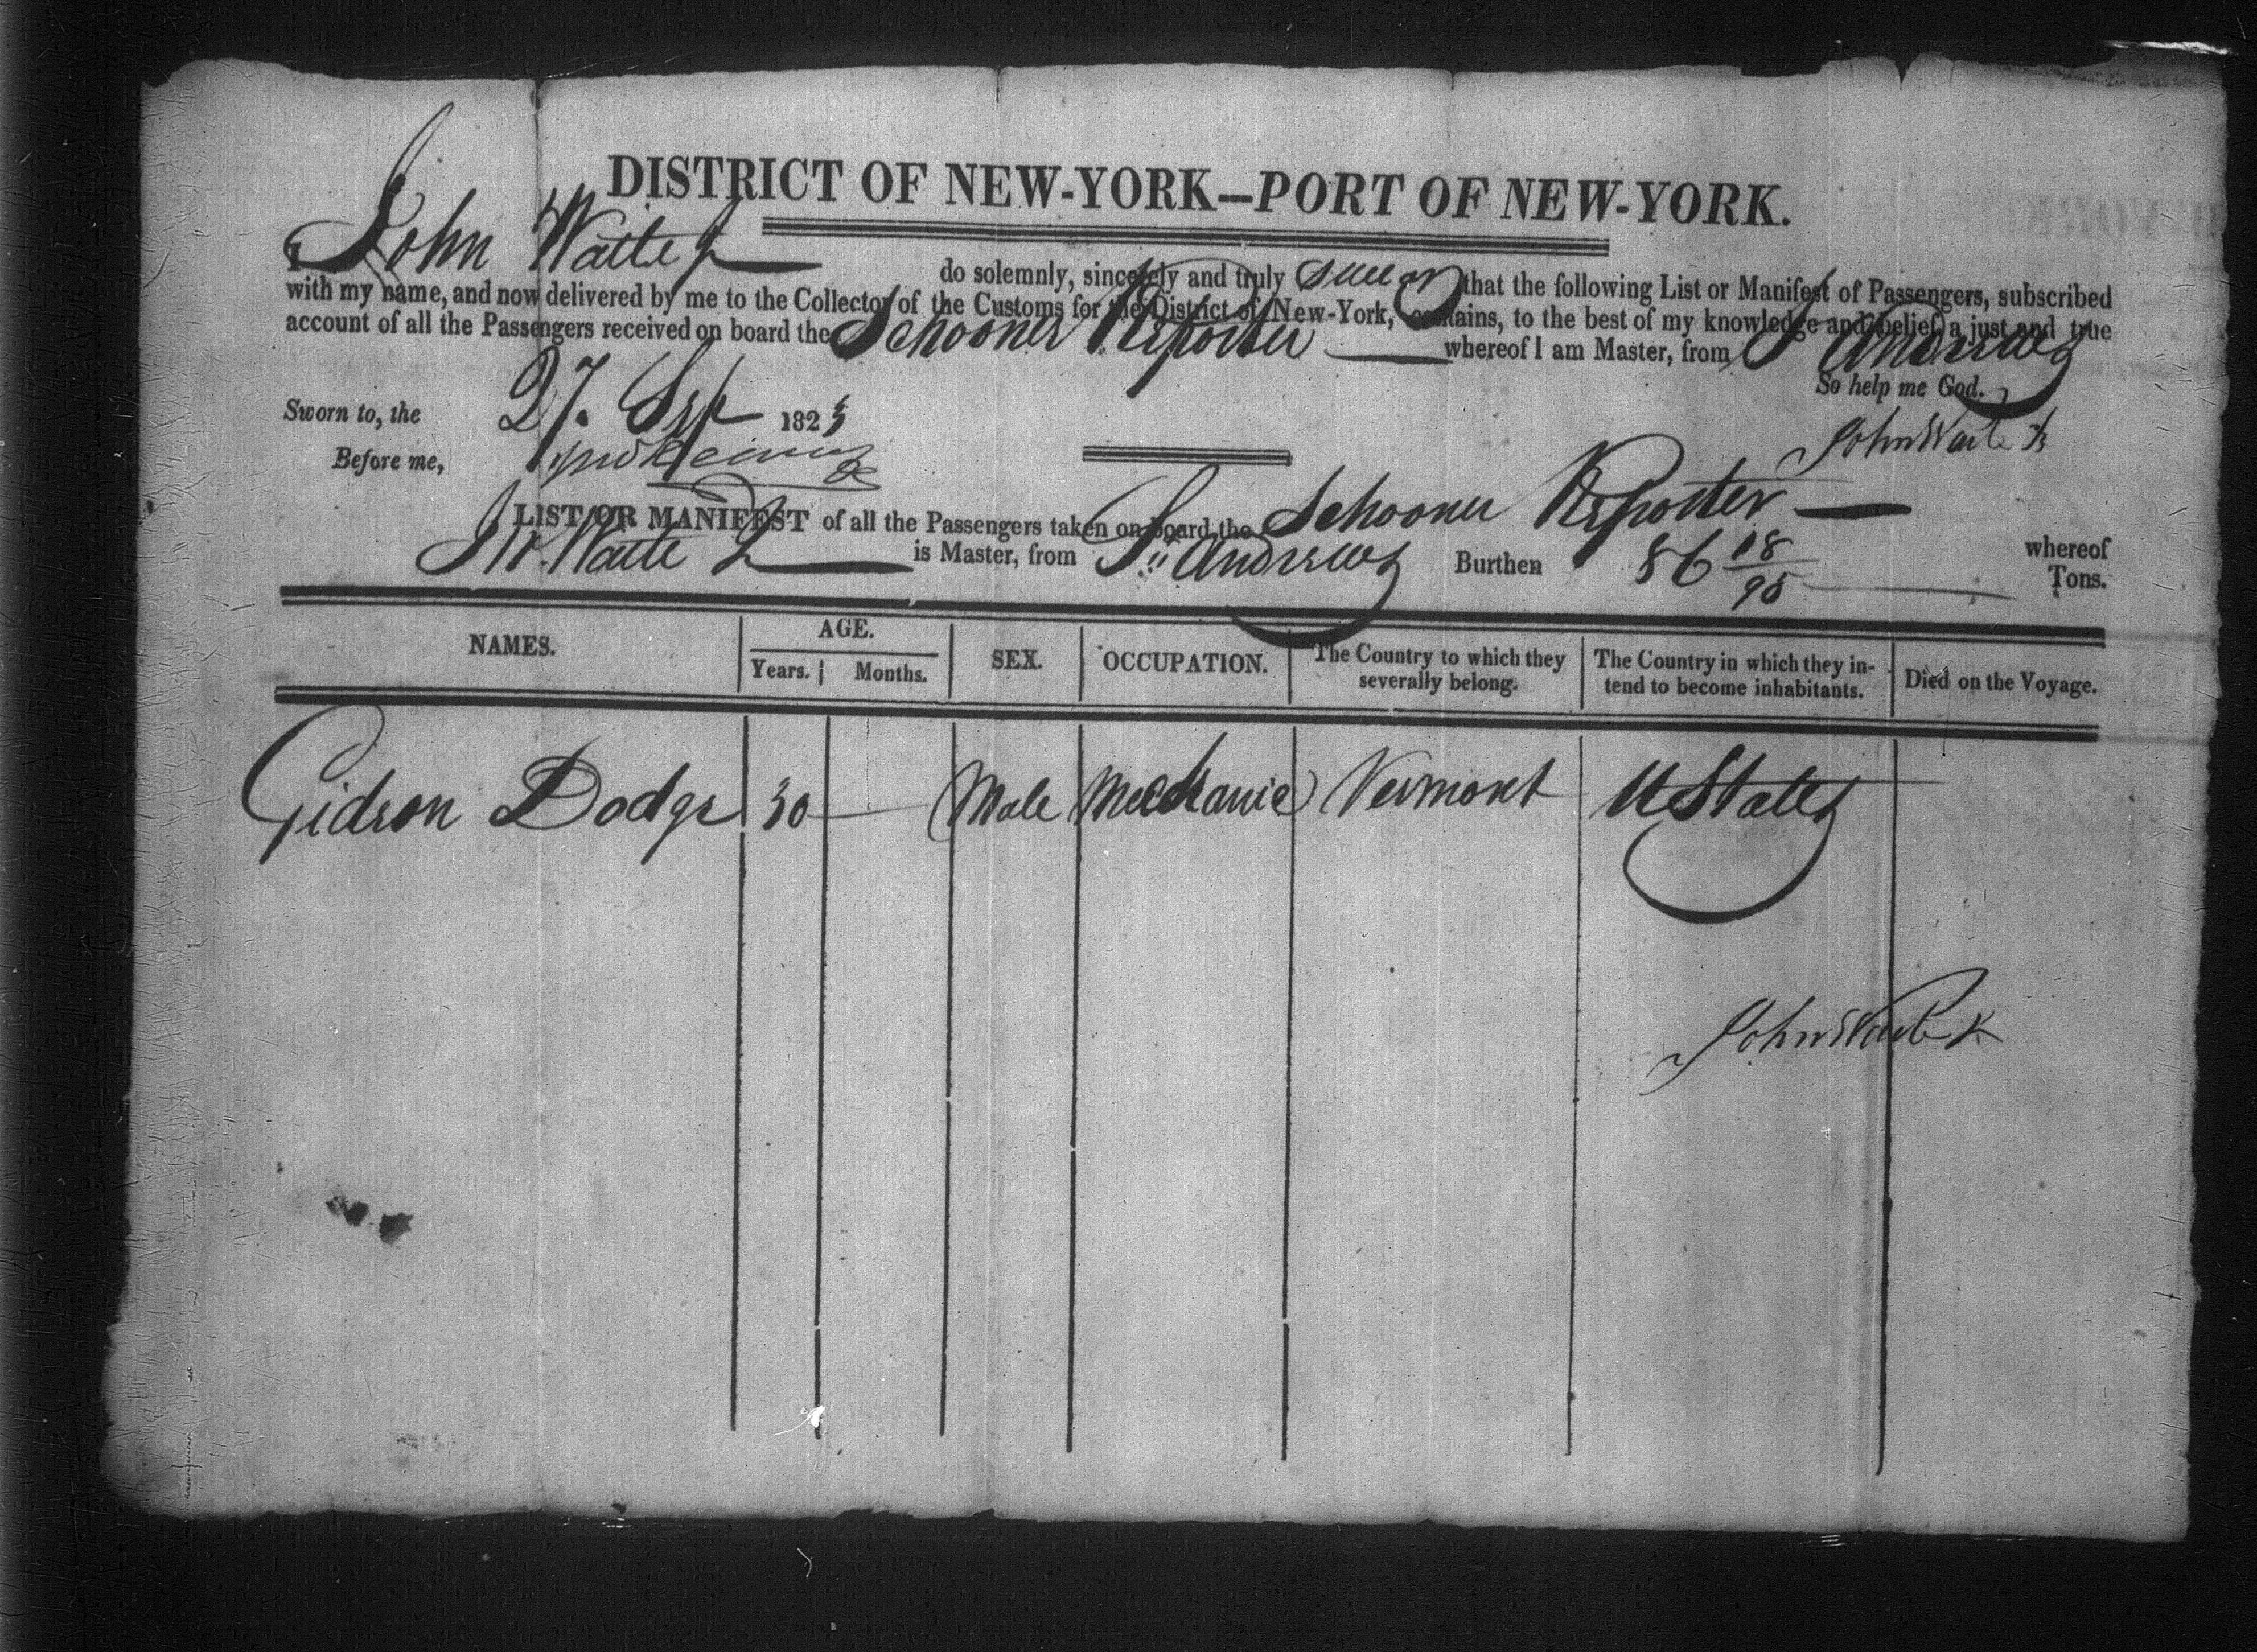 DISTRICT OF NEW-YORK—PORT OF NEW-YORK.
I John Waite Jr do solemnly, sincerely and truly swear that the following List or Manifest of Passengers, subscribed
with my name, and now delivered by me to the Collector of the Customs for the District of New-York, contains, to the best of my knowledge and belief, a just and true
account of all the Passengers received on board the Schooner Reporter whereof I am Master, from St Andrews
So help me God.
Sworn to, the 27. Sep 1823 John Waite Jr
Before me,
LIST OR MANIFEST of all the Passengers taken on board the Schooner Reporter whereof
Jn. Waite Jr is Master, from St. Andrews Burthen 86 18/95 Tons.
NAMES. AGE. Years. Months. SEX. OCCUPATION. The Country to which they severally belong. The Country in which they intend to become inhabitants. Died on the Voyage.
Gideon Dodge 30 Male Mechanic Vermont U States
John Waite Jr